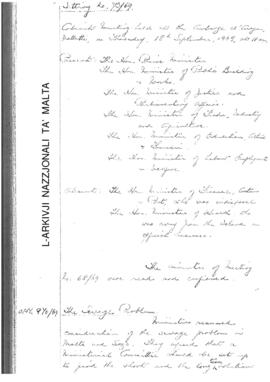 Sitting No. 73/69.
Cabinet Meeting held at the Auberge d'Aragon,
Valletta, on Thursday, 18th September, 1969, at 10 a.m.
Present: The Hon. Prime Minister
The Hon. Minister of Public Building
& Works.
The Hon. Minister of Justice and
Parliamentary Affairs.
The Hon. Minister of Trade, Industry
and Agriculture.
The Hon. Minister of Education, Culture
& Tourism.
The Hon. Minister of Labour, Employment
& Welfare
Absent: The Hon. Minister of Finance, Customs
& Port, who was indisposed
The Hon. Minister of Health who
was away from the Island on
official business.
The minutes of Meeting
No. 68/69 were read and confirmed.
The Sewage Problem
Ministers resumed
consideration of the sewage problem in
Malta and Gozo. They agreed that a
Ministerial Committee should be set up
to
the short and the long term solution
L-ARKIVJI NAZZJONALI TA' MALTA